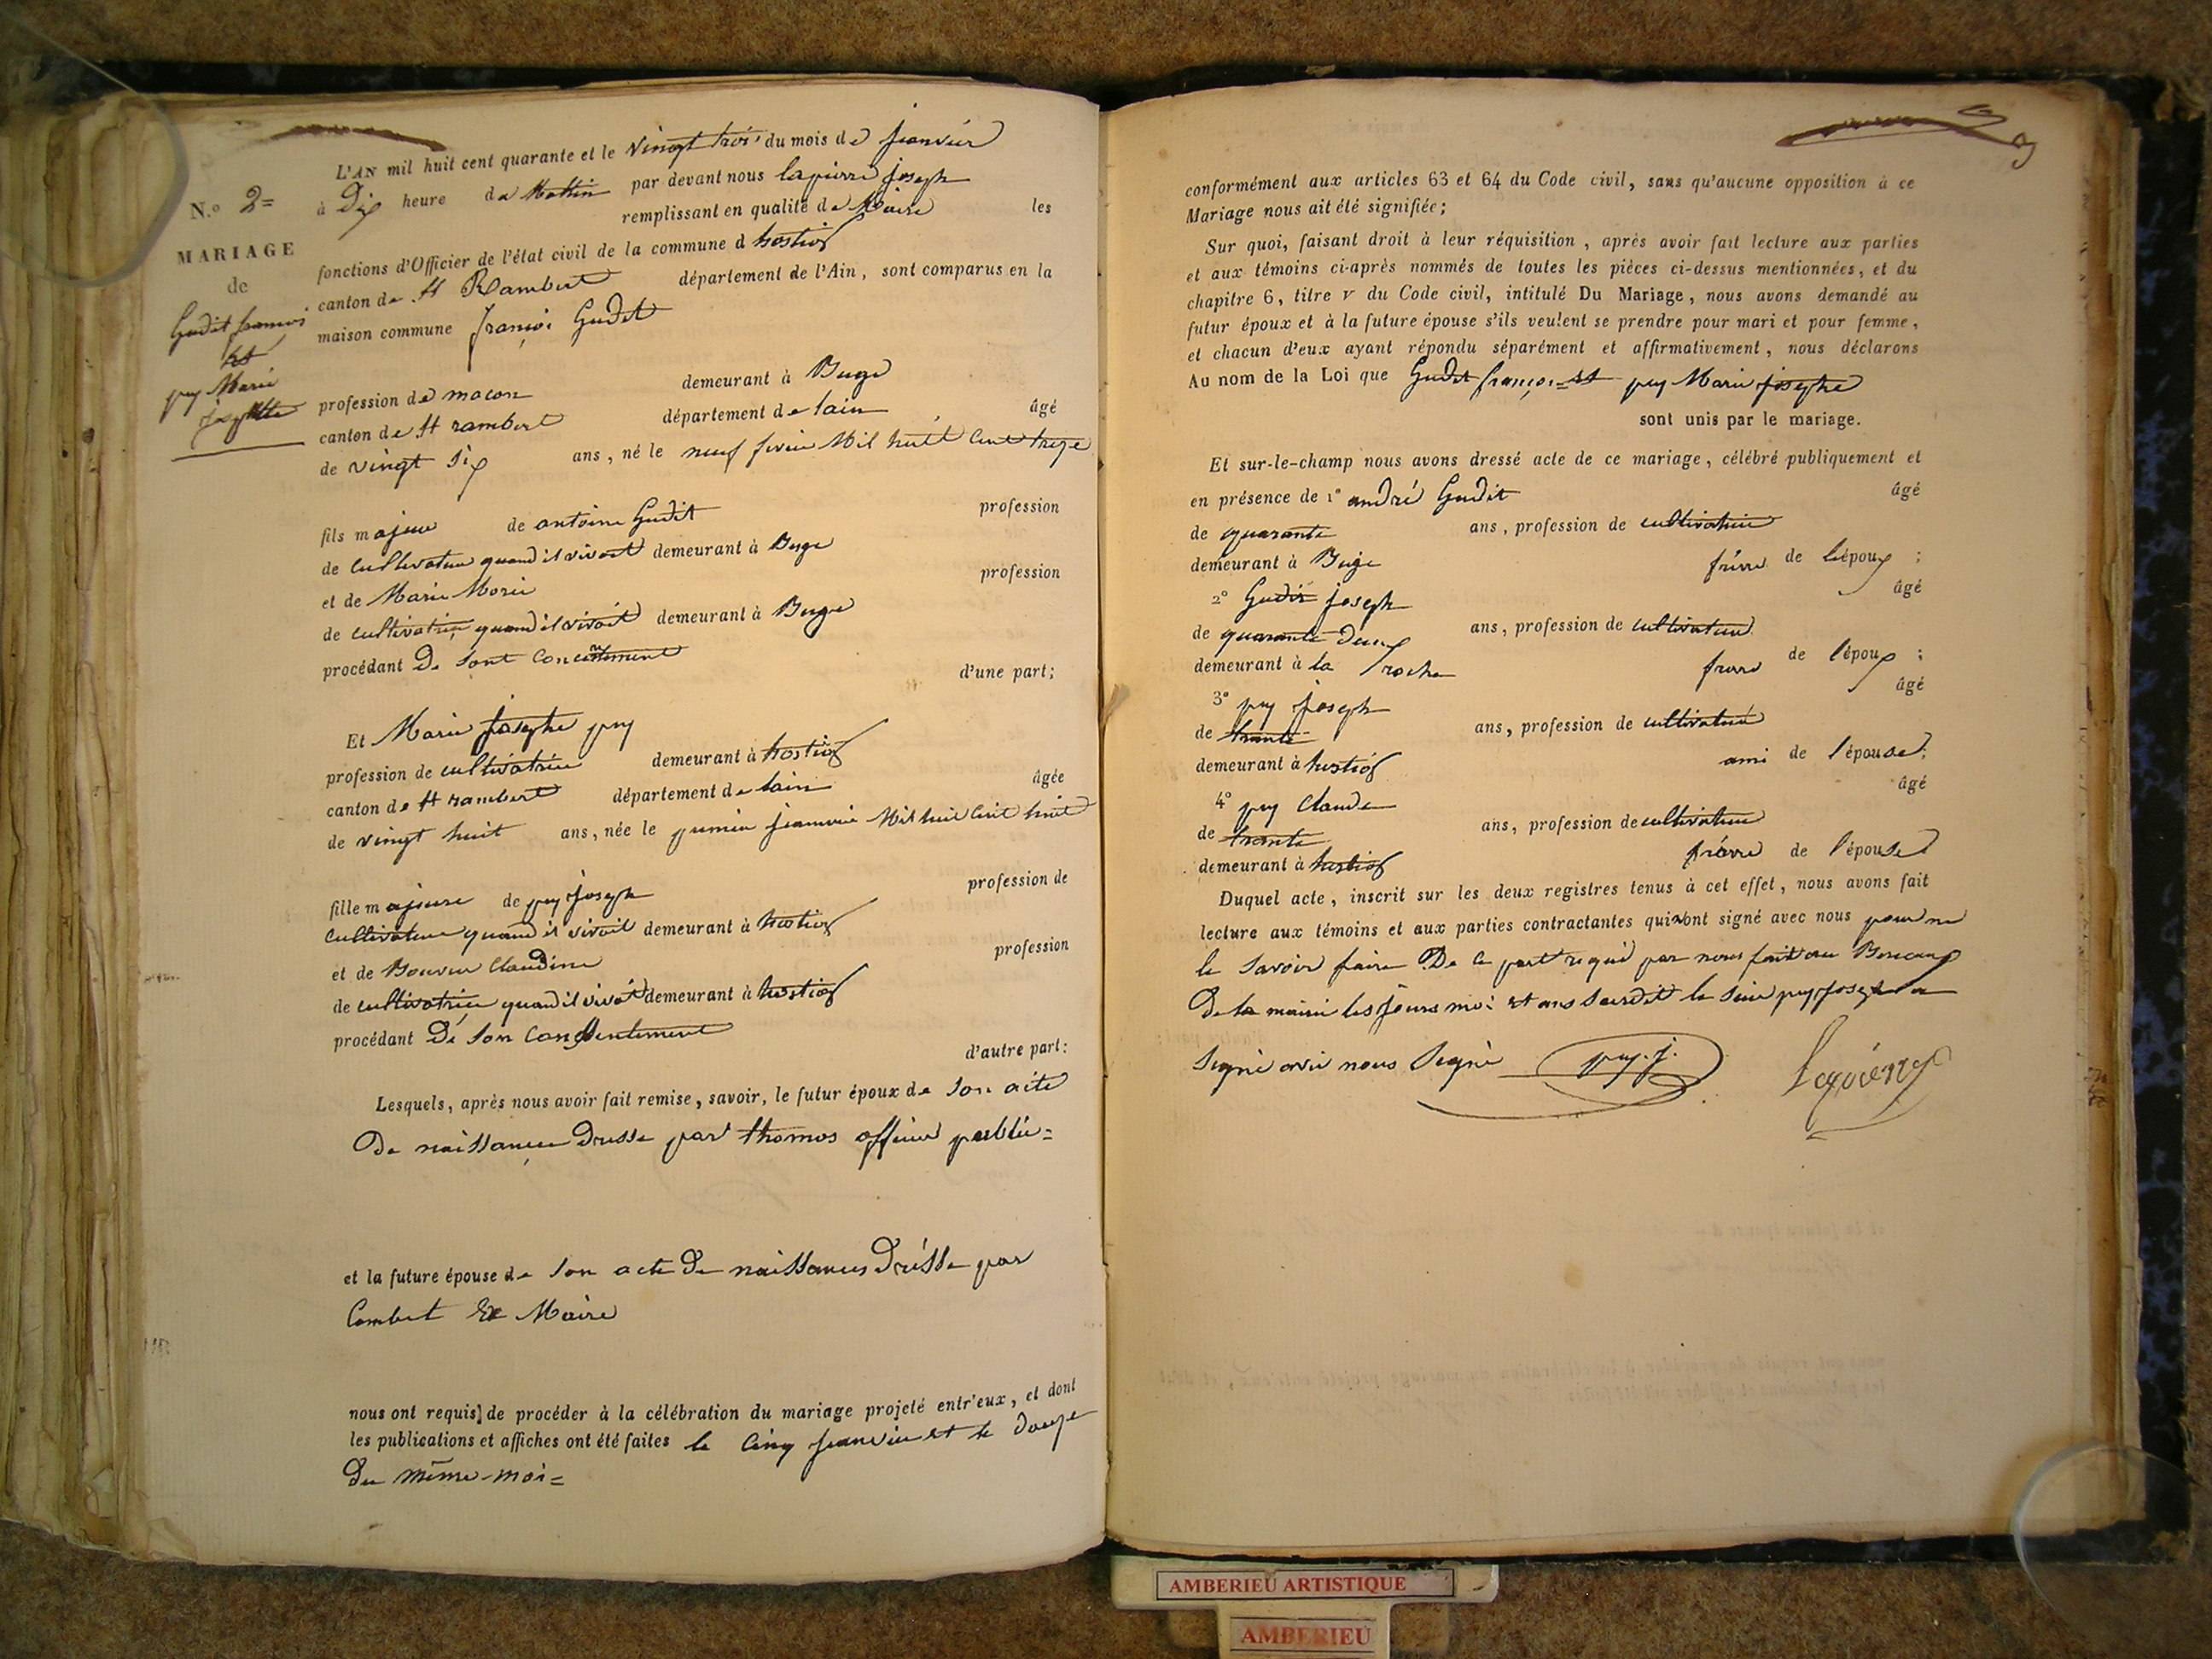 L'AN mil huit cent quarante et le vingt trois du mois de janvier
N.o 2=
à Dix heure du Mattin par devant nous lapierre joseph
remplissant en qualité de Maire les
MARIAGE
fonctions d'Officier de l'état civil de la commune d hostiaz
de
canton de St Rambert département de l'Ain, sont comparus en la
Gudet francois
maison commune françoi Gudet
et
puy Marie
josephte
profession de macon demeurant à Buge
canton de St rambert département de lain âgé
de vingt six ans, né le neuf fevrie Mil huit Cent treze
fils majeur de antoine Gudet profession
de cultivateur quand il vivoit demeurant à Buge
et de Marie Morie profession
de cultivatrice quand il vivoit demeurant à Buge
procédant De sont Concentement
d'une part;
Et Marie josephe puy
profession de cultivatrice demeurant à hostiaz
canton de St rambert département de lain âgée
de vingt huit ans, née le premier janvier Mil huit Cent huit
fille majeure de puy joseph profession de
cultivateur quand il vivoit demeurant à hostiaz
et de Bouvier Claudine profession
de cultivatrice quand il vivoit demeurant à hostiaz
procédant De Son Consentement
d'autre part:
Lesquels, après nous avoir fait remise, savoir, le futur époux de Son acte
De naissance Dresse par thomas officier public=
et la future épouse de Son acte De naissances Drésse par
Combet Ex Maire
nous ont requis de procéder à la célébration du mariage projeté entr'eux, et dont
les publications et affiches ont été faites le Cinq janvier et le douze
Du même moi=
conformément aux articles 63 et 64 du Code civil, sans qu'aucune opposition à ce
Mariage nous ait été signifiée;
Sur quoi, faisant droit à leur réquisition, après avoir fait lecture aux parties
et aux témoins ci-après nommés de toutes les pièces ci-dessus mentionnées, et du
chapitre 6, titre V du Code civil, intitulé Du Mariage, nous avons demandé au
futur époux et à la future épouse s'ils veulent se prendre pour mari et pour femme,
et chacun d'eux ayant répondu séparément et affirmativement, nous déclarons
Au nom de la Loi que Gudet françois et puy Marie josephe
sont unis par le mariage.
Et sur-le-champ nous avons dressé acte de ce mariage, célébré publiquement et
en présence de 1° andré Gudet âgé
de quarante ans, profession de cultivateur
demeurant à Buge frére de lépoux ;
2° Gudet joseph âgé
de quarante Deux ans, profession de cultivateur
demeurant à la roche frere de l'époux ;
3° puy joseph âgé
de trante ans, profession de cultivateur
demeurant à hostiaz ami de l'épouse;
4° puy Claude âgé
de trante ans, profession de cultivateur
demeurant à hostiaz frére de l'épouse
Duquel acte, inscrit sur les deux registres tenus à cet effet, nous avons fait
lecture aux témoins et aux parties contractantes qui n'ont signé avec nous pour ne
le Savoir faire De ce part requi par nous fait au Bureaux
De la mairie les jours moi et ans Susdit le Sieur puy joseph a
Signé avec nous Segné puy. j. Lapierre
AMBERIEU ARTISTIQUE
AMBERIEU